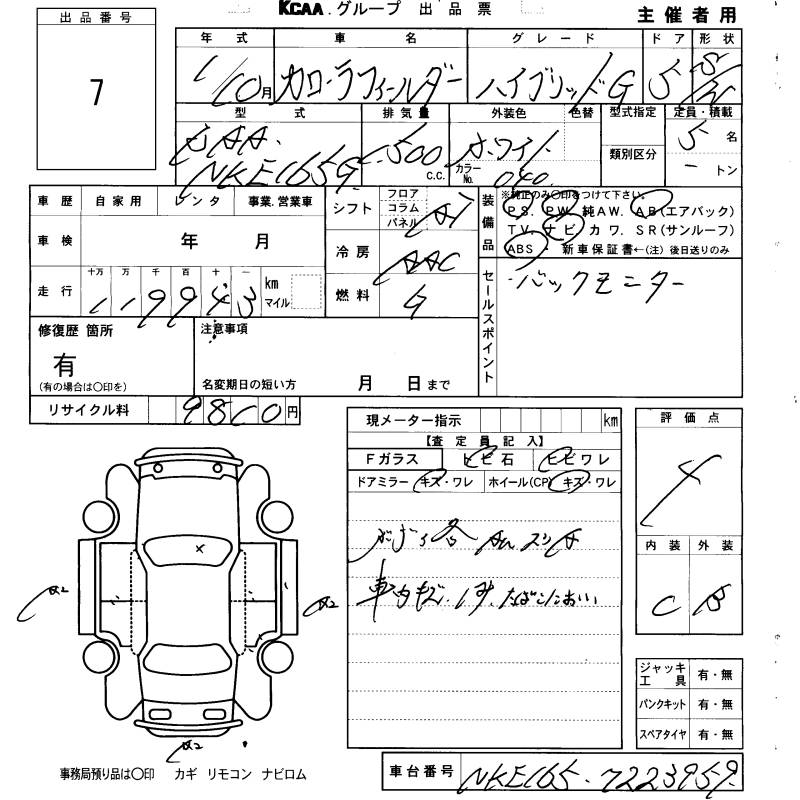 KCAA.グループ 出品票
主催者用
出品番号
7
年式 車名 グレード ドア 形状
1/10月 カローラフィールダー ハイブリッドG 5 S/W
型式 排気量 外装色 色替 型式指定 定員・積載
DAA-
NKE165G 1500 c.c. ホワイト 類別区分 5名
カラーNo. 040 ートン
車歴 自家用 レンタ 事業.営業車
シフト フロア コラム パネル AT
装備品 ※純正のみ〇印をつけて下さい。
PS. PW. 純AW. AB(エアバック)
TV. ナビ カワ. SR(サンルーフ)
ABS・新車保証書←(注) 後日送りのみ
車検 年 月
冷房 AAC
走行 十万 万 千 百 十 一
119943 km マイル
燃料 G
セールスポイント
・バックモニター
修復歴 箇所
有
(有の場合は〇印を)
注意事項
名変期日の短い方 月 日まで
リサイクル料 9800円
現メーター指示 km
【査定員記入】
Fガラス トビ石 ヒビワレ
ドアミラー キズ・ワレ ホイール(CP) キズ・ワレ
車内キズ.
たばこにおい
評価点
4
内装 外装
C B
A2
A2
A2
ジャッキ工具 有・無
パンクキット 有・無
スペアタイヤ 有・無
事務局預り品は〇印 カギ リモコン ナビロム
車台番号 NKE165-7223959.